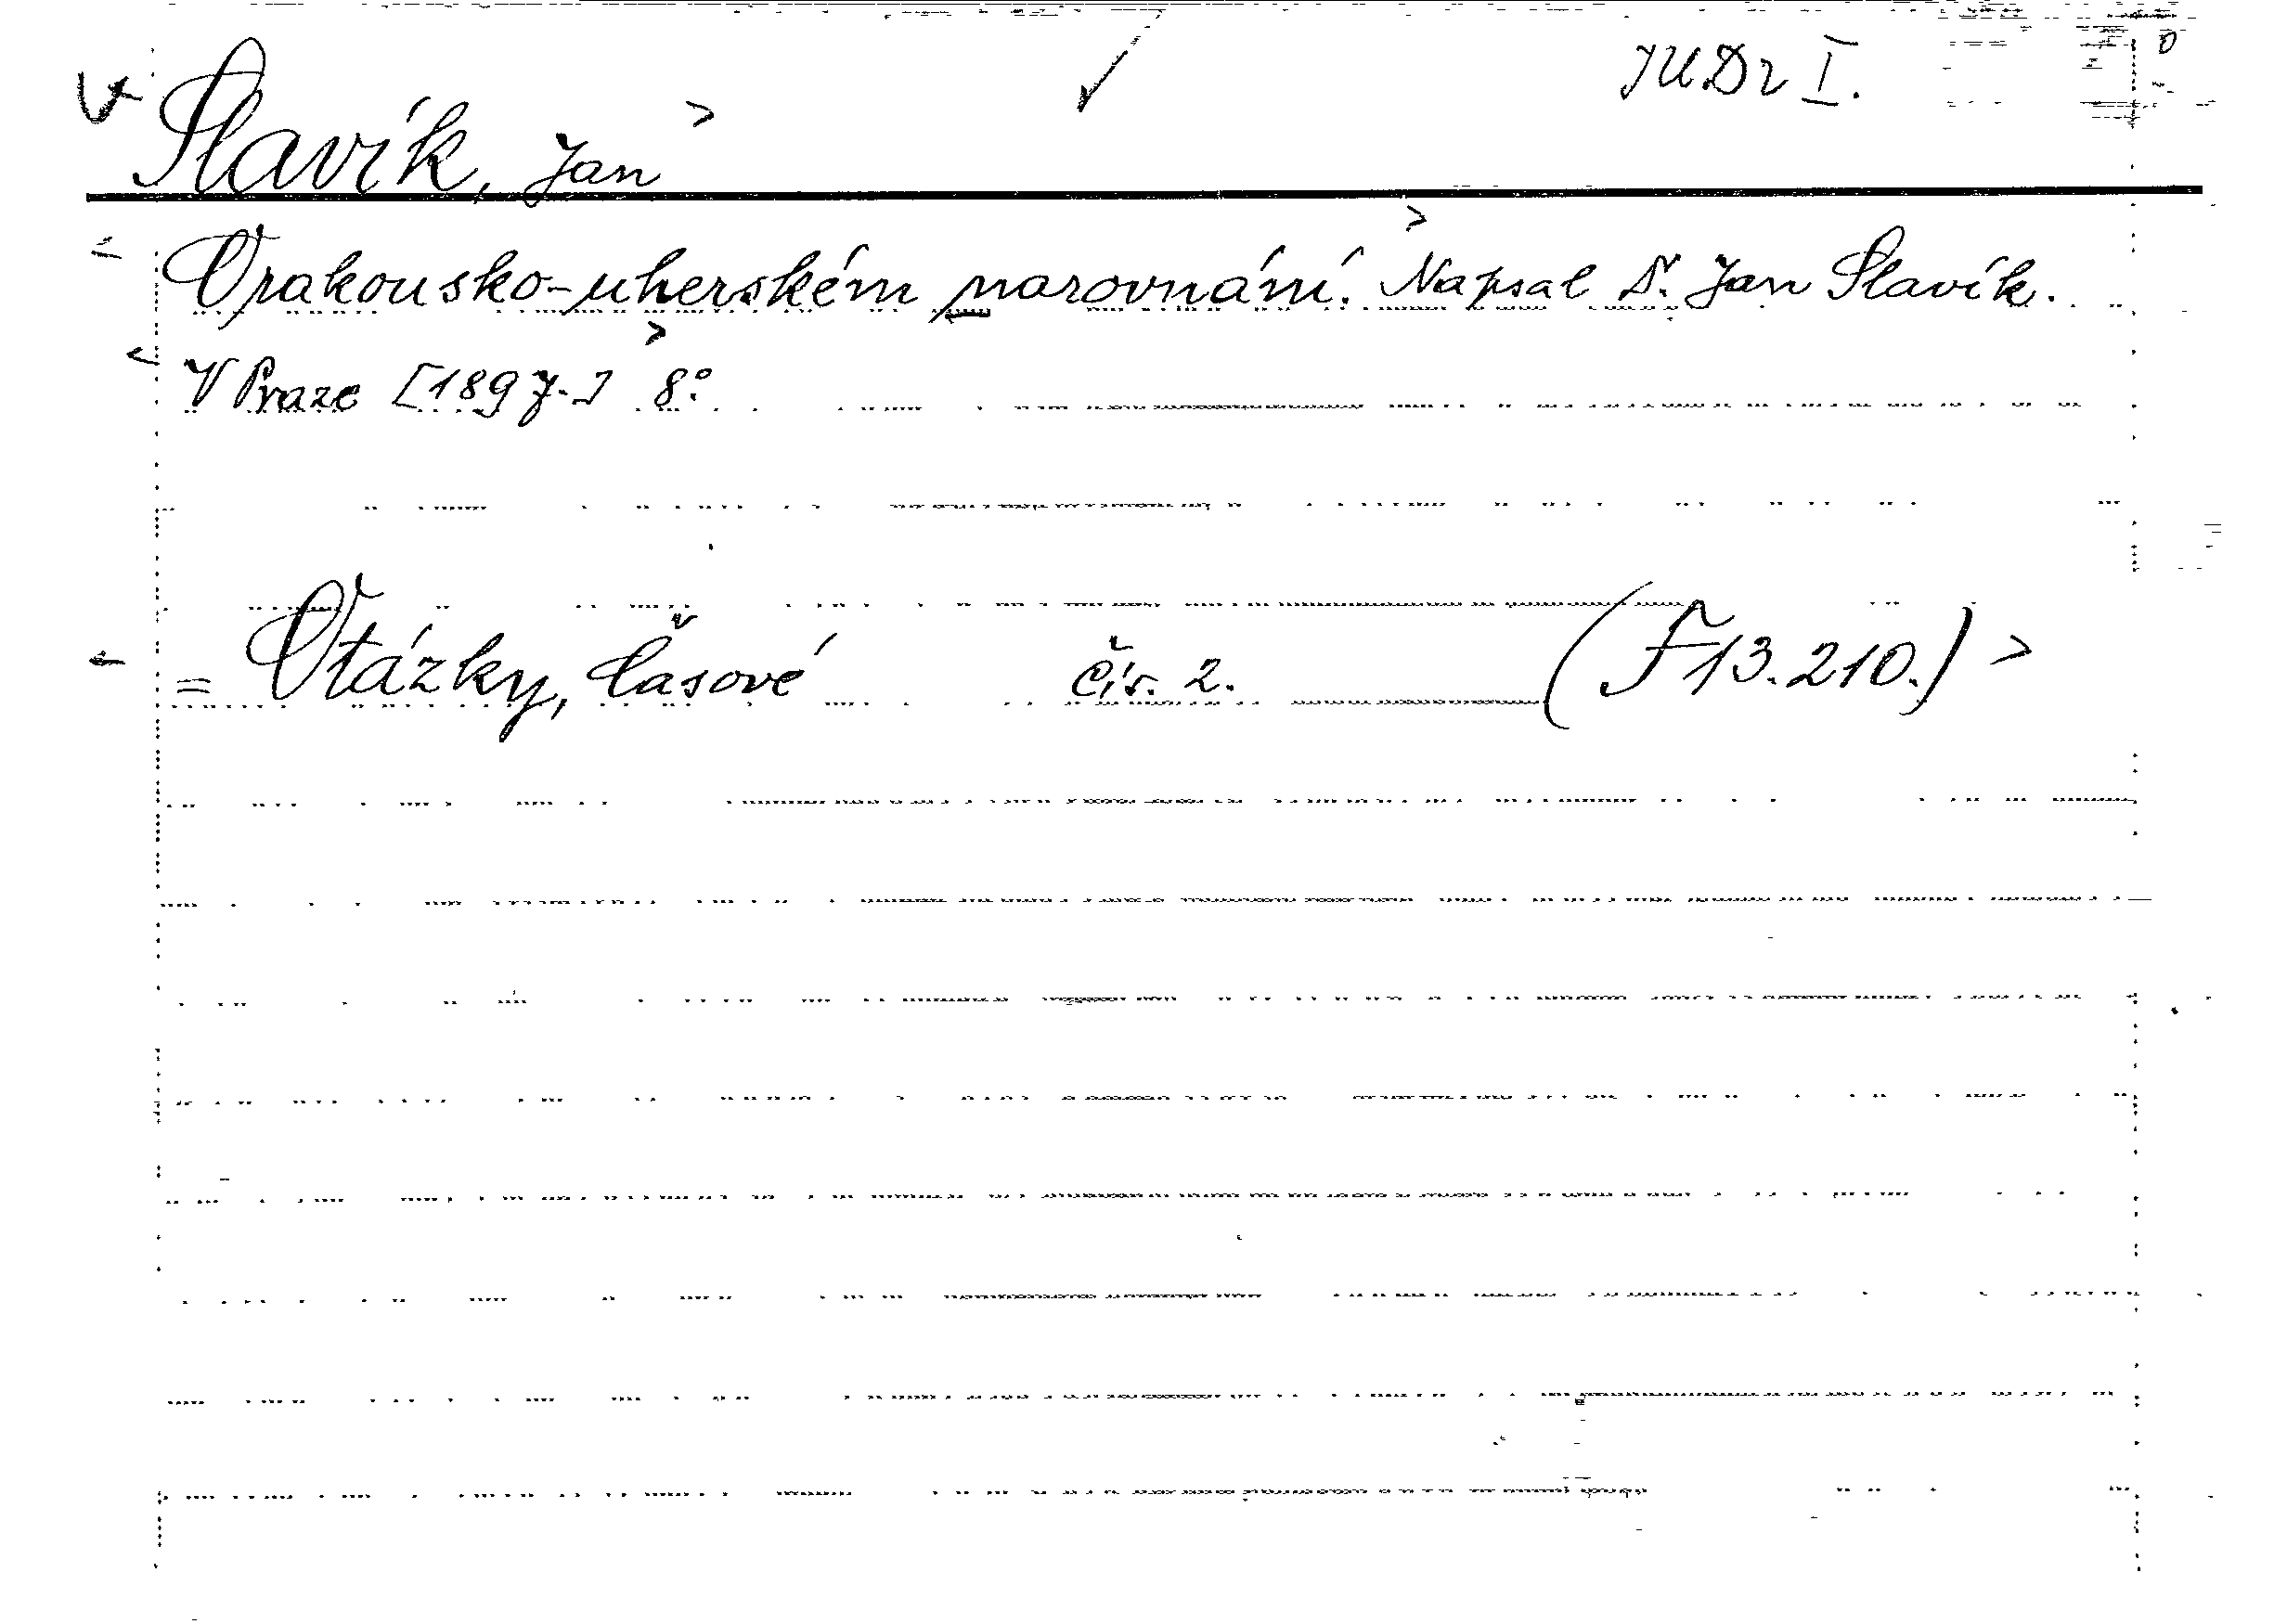 JUDr I.
Slavík, Jan
O rakousko-uherském narovnání. Napsal Dr. Jan Slavík.
V Praze [1897.] 8°
= Otázky, Časové čís. 2. (F 13.210.)